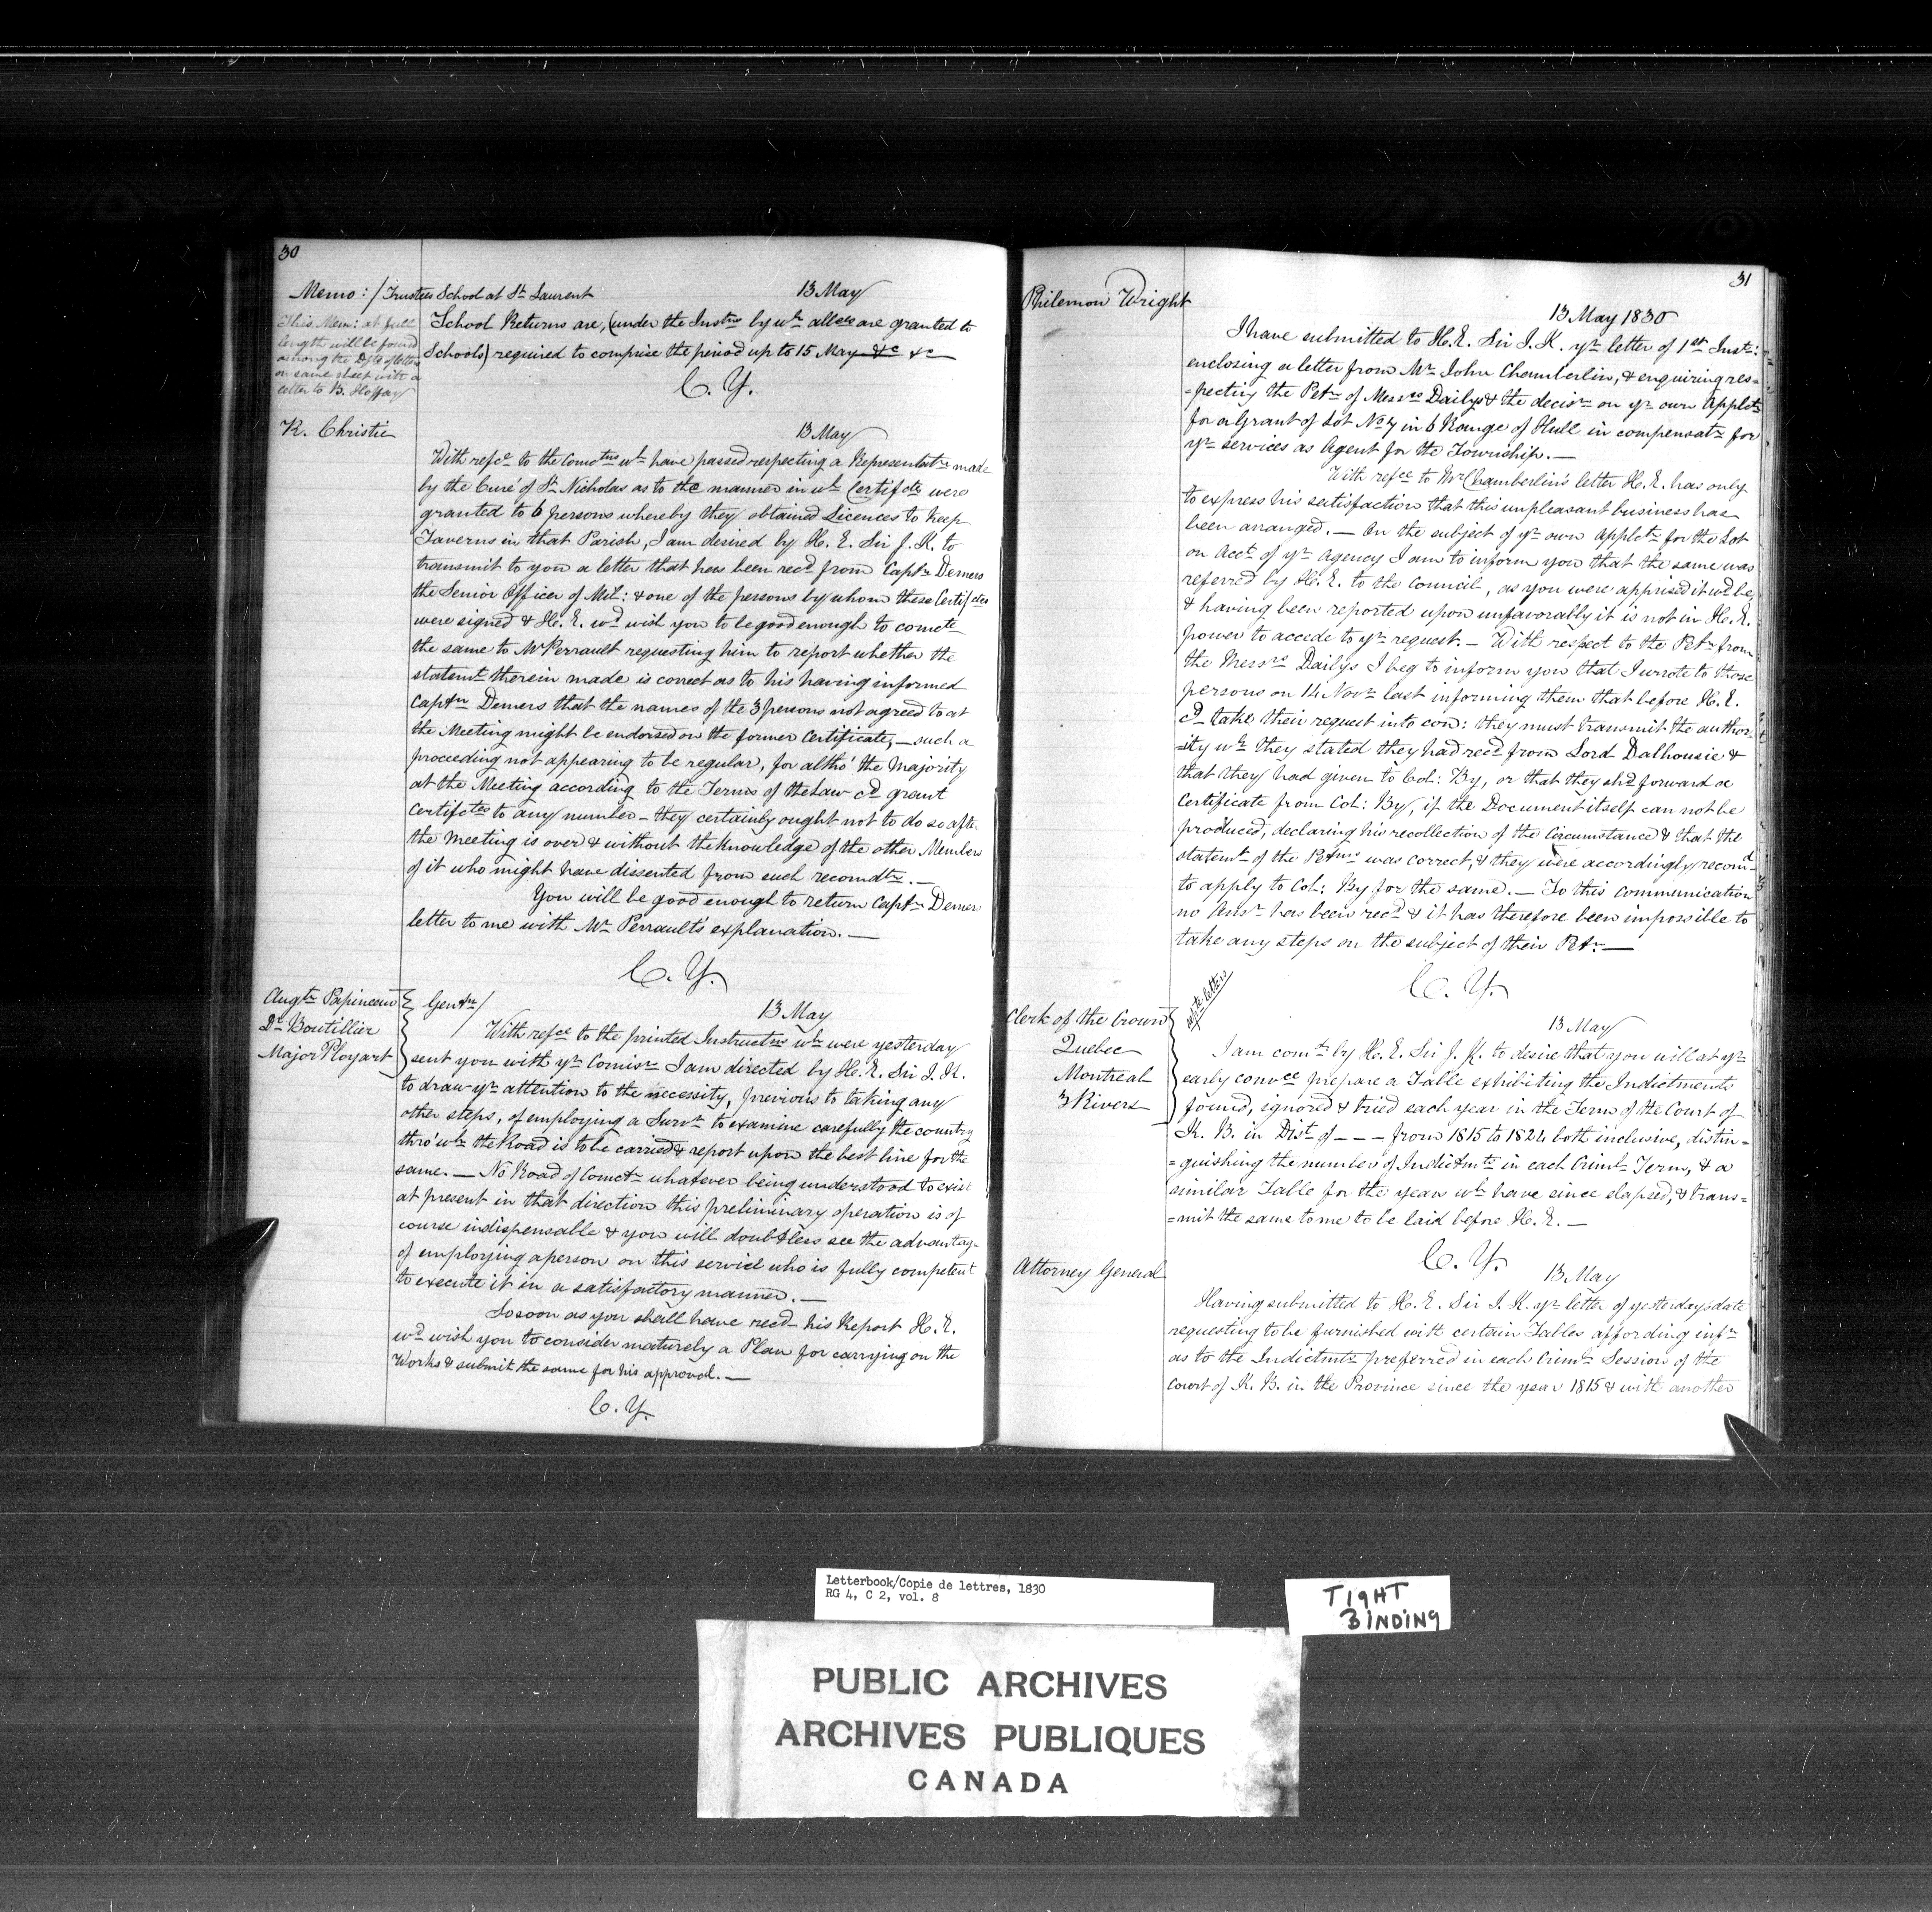 30
Memo: / Trustees School at St. Laurent 13 May
This Mem: at full
length will be found
among the Dfts of letters
on same sheet with a
letter to B.
School Returns are, (under the Instns by wh allces are granted to
Schools) required to comprise the period up to 15 May &c &c
C. Y.
R. Christie
13 May
With refce to the Comctns wh have passed respecting a Representatn made
by the Curé of St Nicholas as to the manner in wh Certifcts were
granted to 6 persons whereby they obtained Licences to keep
Taverns in that Parish, I am desired by H. E. Sir J. K. to
transmit to you a letter that has been recd from Captn Demers
the Senior Officer of Mil: & one of the persons by whom these Certifctes
were signed & H. E. wd wish you to be good enough to comcte
the same to Mr Perrault requesting him to report whether the
statemt therein made is correct as to his having informed
Captn Demers that the names of the 3 persons not agreed to at
the Meeting might be endorsed on the former Certificate, — such a
proceeding not appearing to be regular, for altho' the Majority
at the Meeting according to the Terms of the Law cd grant
Certifctes to any number — they certainly ought not to do so after
the meeting is over & without the knowledge of the other Members
of it who might have dissented from such recomdtn. —
You will be good enough to return Captn Demers
letter to me with Mr Perrault's explanation. —
C. Y.
Augtn Papineau
Dr Boutillier
Major Ployart
Gentn / 13 May
With refce to the printed Instructns wh were yesterday
sent you with yr Comisn I am directed by H. E. Sir J. K.
to draw yr attention to the necessity, previous to taking any
other steps, of employing a Survr to examine carefully the country
thro' wh the Road is to be carried & report upon the best line for the
same. — No Road of Comctn whatever being understood to exist
at present in that direction this preliminary operation is of
course indispensable & you will doubtless see the advantage
of employing a person on this service who is fully competent
to execute it in a satisfactory manner. —
So soon as you shall have recd his Report H. E.
wd wish you to consider maturely a Plan for carrying on the
Works & submit the same for his approval. —
C. Y.
31
Philemon Wright
13 May 1830
I have submitted to H. E. Sir J. K. yr letter of 1st Inst:
enclosing a letter from Mr John Chamberlin, & enquiring res=
=pecting the Petn of Messrs Dailys & the decisn on yr own Applctn
for a Grant of Lot No 7 in 6 Range of Hull in compensatn for
yr services as Agent for the Township. —
With refce to Mr Chamberlin's letter H. E. has only
to express his satisfaction that this unpleasant business has
been arranged. — On the subject of yr own applctn for the Lot
on Acct of yr Agency I am to inform you that the same was
referred by H. E. to the Council, as you were apprised it wd be,
& having been reported upon unfavorably it is not in H. E.
power to accede to yr request. — With respect to the Petn from
the Messrs Dailys I beg to inform you that I wrote to those
persons on 14 Novr last informing them that before H. E.
cd take their request into con: they must transmit the author=
=ity wh they stated they had recd from Lord Dalhousie &
that they had given to Col: By, or that they shd forward a
Certificate from Col: By, if the Document itself can not be
produced, declaring his recollection of the Circumstance & that the
statemt of the Petnrs was correct, & they were accordingly recomd
to apply to Col: By for the same. — To this communication
no Ansr has been recd & it has therefore been impossible to
take any steps on the subject of their Petn —
C. Y.
Clerk of the Crown
Quebec
Montreal
3 Rivers
13 May
I am comd by H. E. Sir J. K. to desire that you will at yr
early convce prepare a Table exhibiting the Indictments
found, ignored & tried each year in the Term of the Court of
K. B. in Dist of - - - from 1815 to 1824 both inclusive, distin=
=guishing the number of Indictmts in each Criml Term, & a
similar Table for the years wh have since elapsed, & trans=
=mit the same to me to be laid before H. E. —
C. Y.
Attorney General
13 May
Having submitted to H. E. Sir J. K. yr letter of yesterday's date
requesting to be furnished with certain Tables affording infn
as to the Indictmts preferred in each Criml Session of the
Court of K. B. in the Province since the year 1815 & with another
Letterbook/Copie de lettres, 1830
RG 4, C 2, vol. 8
TIGHT
BINDING
PUBLIC ARCHIVES
ARCHIVES PUBLIQUES
CANADA